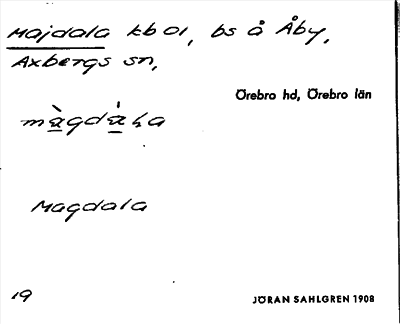 Majdala kb 01, bs å Åby,
Axbergs sn,
Örebro hd, Örebro län
Magdala
19
JÖRAN SAHLGREN 1908